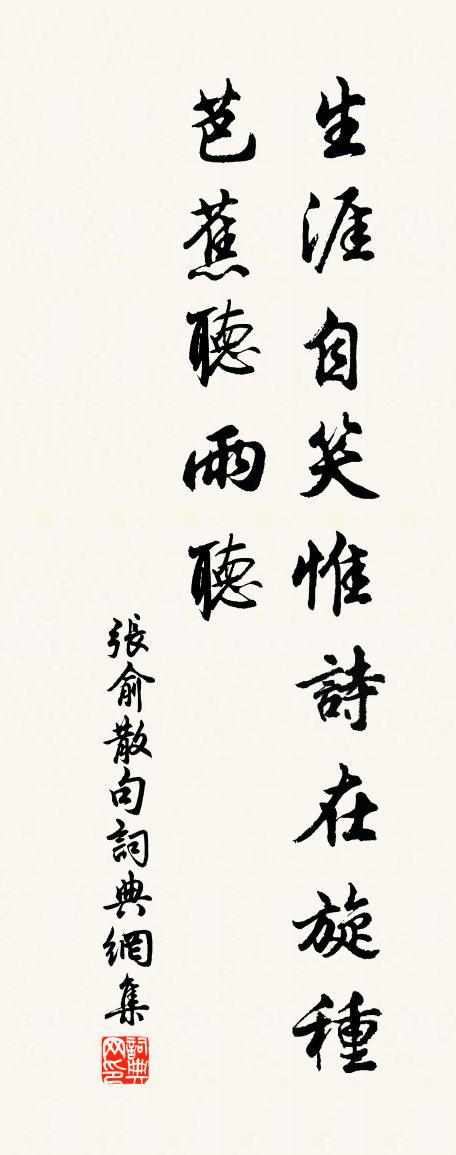 生涯自笑惟詩在旋種
芭蕉聽雨聽
張俞散句詞典網集
詞典网印